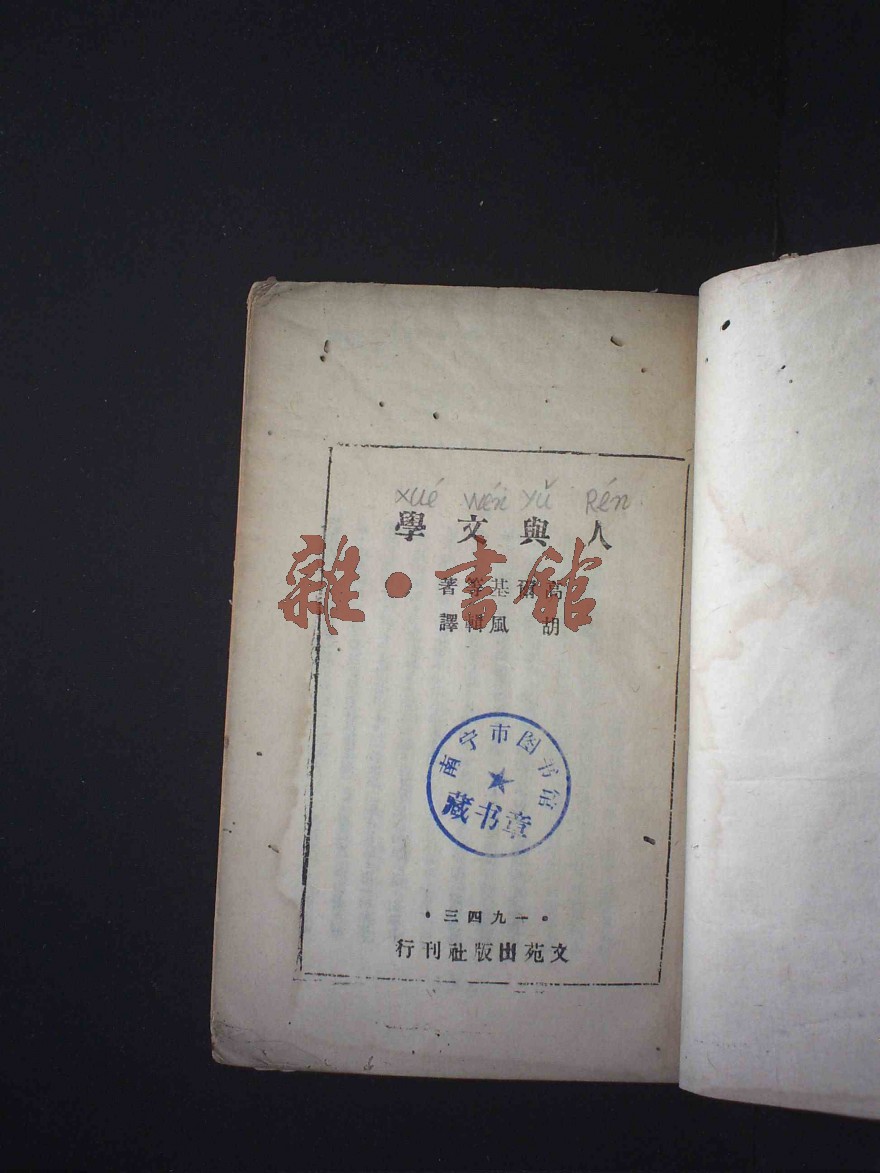 xué wén yǔ Rén
人與文學
高爾基等著
胡風輯譯
雜·書館
南宁市图书馆
藏书章
·一九四三·
文苑出版社刊行